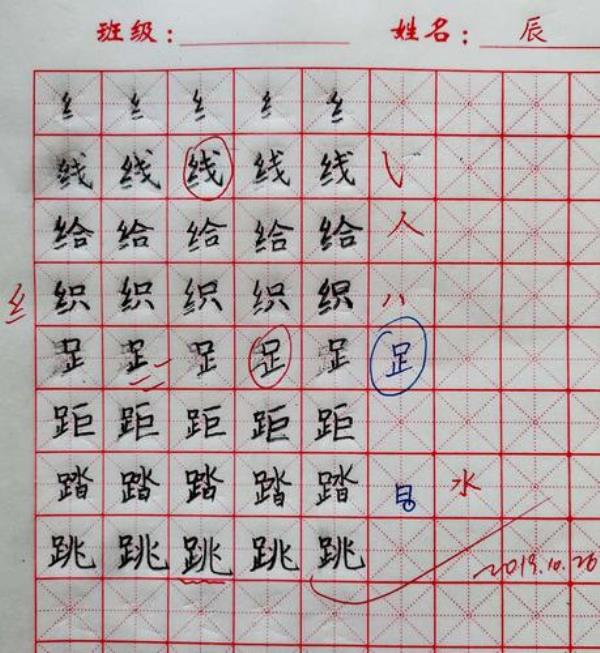 班级： 姓名：辰
纟 纟 纟 纟 纟
线 线 线 线 线
给 给 给 给 给 人
纟 织 织 织 织 织 八
足 足 足 足 足 足
距 距 距 距 距
踏 踏 踏 踏 踏 水
跳 跳 跳 跳 跳
2019.10.26